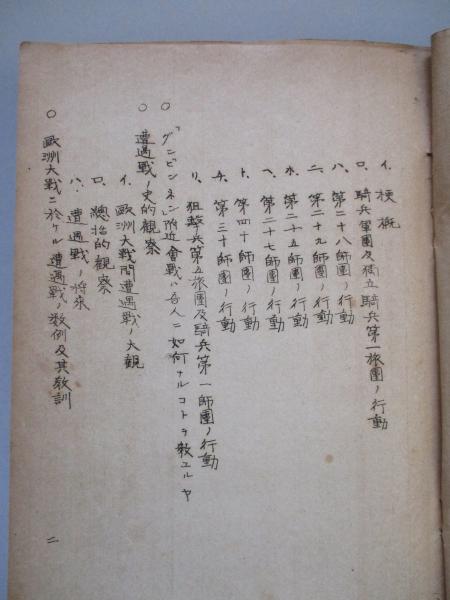 イ、梗概
ロ、騎兵軍団及独立騎兵第一旅團ノ行動
ハ、第二十八師團ノ行動
二、第二十九師團ノ行動
ホ、第二十五師團ノ行動
ヘ、第二十七師團ノ行動
ト、第四十師團ノ行動
チ、第三十師團ノ行動
リ、狙撃兵第五旅團及騎兵第一師團ノ行動
○「グンビンネン」附近會戰ハ吾人ニ如何ナルコトヲ教エルヤ
○ 遭遇戰ノ史的観察
イ、欧洲大戰間遭遇戰ノ大観
ロ、總括的観察
ハ、遭遇戰ノ将来
○ 欧洲大戰ニ於ケル遭遇戰ノ数例及其教訓
二